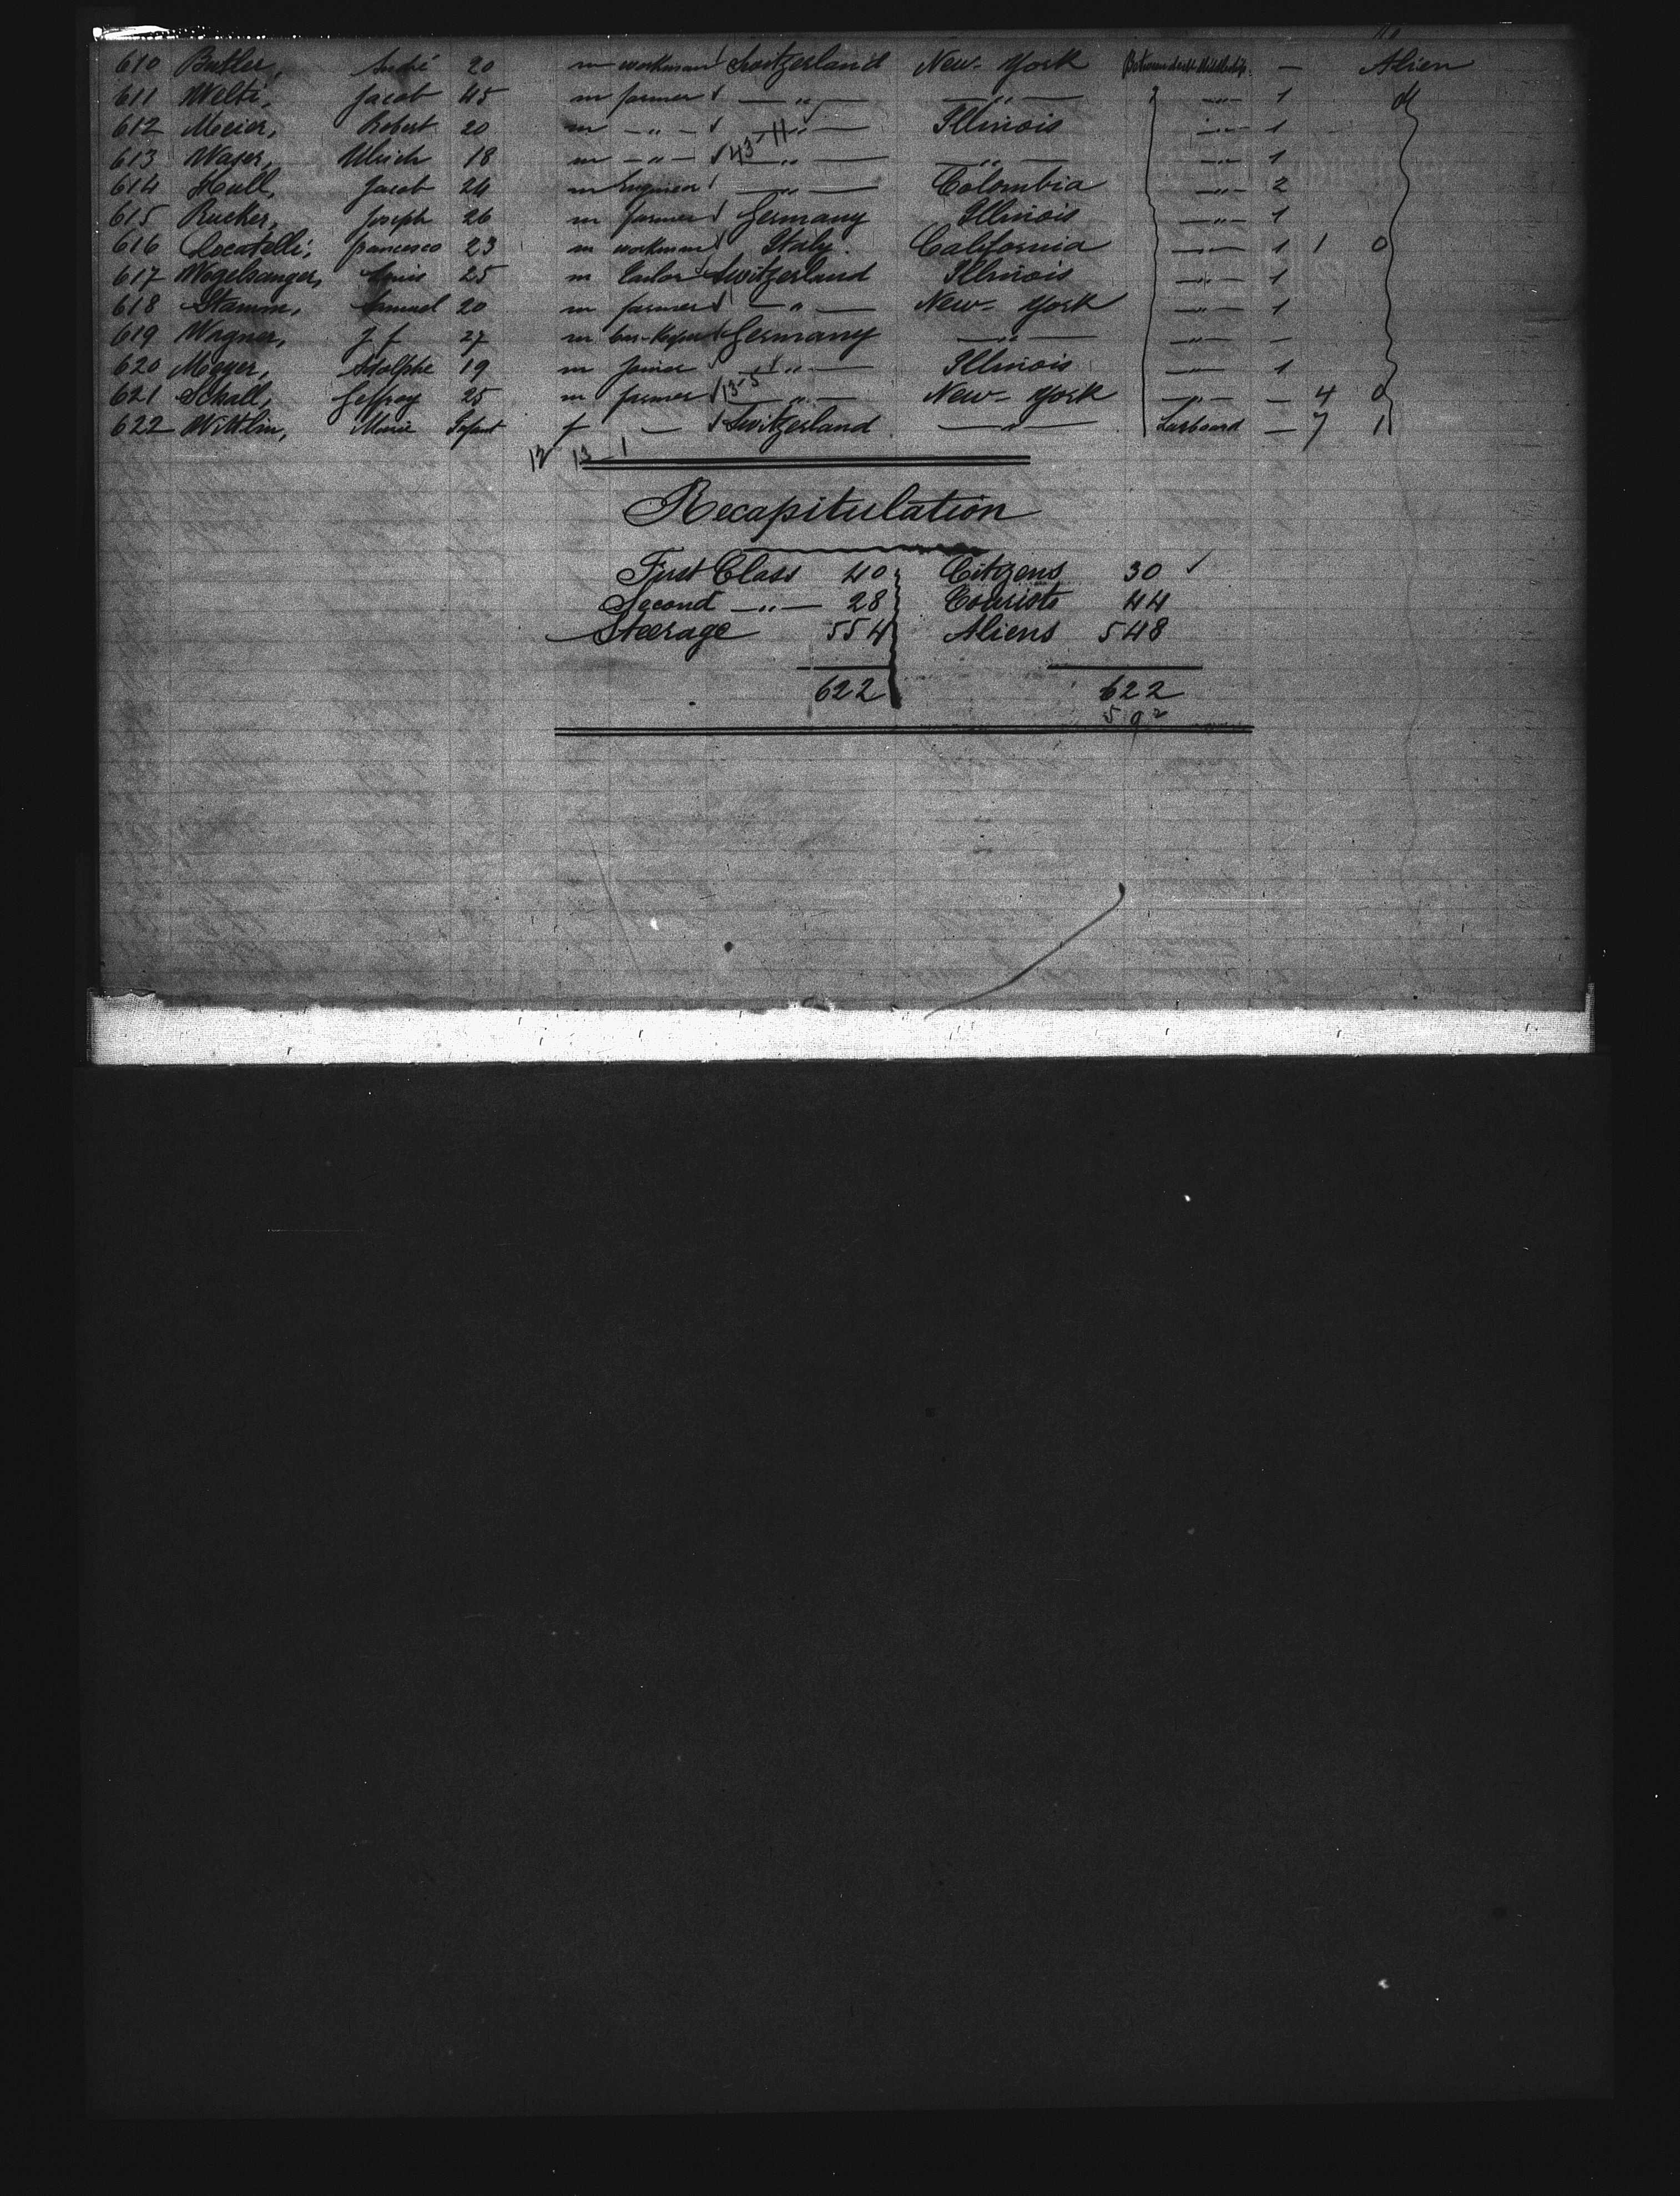 610 Butler, André 20 m workman Switzerland New-York Between decks Middleship. — Alien
611 Welti, Jacob 45 m farmer — " — — " — — " — 1
612 Meier, Robert 20 m — " — — " — Illinois — " — 1
613 Waser, Ulrich 18 m — " — 43-11 — " — — " — — " — 1
614 Hull, Jacob 24 m Engineer — " — Colombia — " — 2
615 Rucker, Joseph 26 m farmer Germany Illinois — " — 1
616 Locatelli, Francesco 23 m workman Italy. California — " — 1 1 0
617 Vogelsanger, Louis 25 m tailor Switzerland Illinois — " — 1
618 Stamm, Samuel 20 m farmer — " — New-York — " — 1
619 Wagner, J. J. 27 m Germany — " — — " — —
620 Meyer, Adolphe 19 m joiner — " — Illinois — " — 1
621 Schall, Geffroy 25 m farmer 13-5 — " — New-York — " — — 4 0
622 Wittlin, Marie Infant f — Switzerland — " — Larboard — 7 1
12 13-1
Recapitulation
First Class 40 Citizens 30 ✓
Second — " — 28 Tourists 44
Steerage 554 Aliens 548
622 622
592